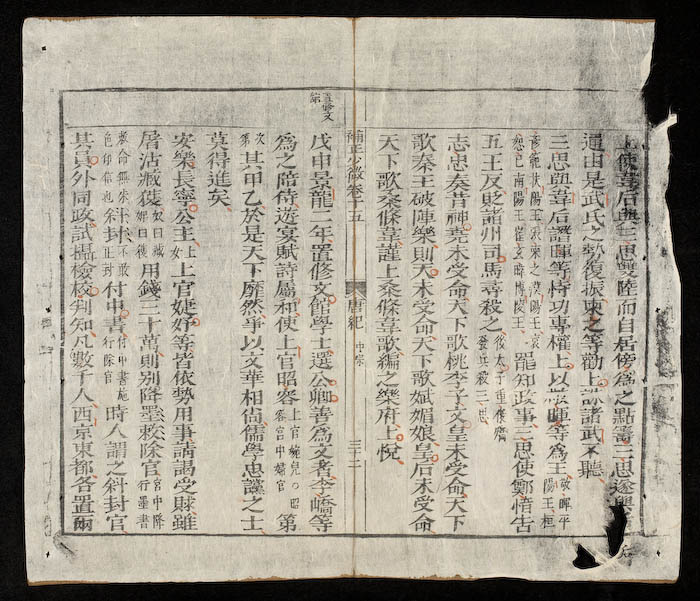 上使韋后與三思雙陸而自居傍爲之點籌三思遂與后
通由是武氏之勢復振柬之等勸上誅諸武不聽
三思與韋后譖暉等恃功專權上以敬暉等爲王敬暉平陽王桓
彥範扶陽王張柬之漢陽王袁恕己南陽王崔玄暐博陵王罷知政事三思使鄭愔告
五王反貶諸州司馬尋殺之後太子重俊發兵殺三思
志忠奏昔神堯未受命天下歌桃李子文皇未受命天下
歌秦王破陣樂則天未受命天下歌娬媚娘皇后未受命
天下歌桑條韋謹上桑條韋歌編之樂府上悅
補正少微卷十五 唐紀 中宗 三十二
置修文館
戊申景龍二年置修文館學士選公卿善爲文者李嶠等
爲之陪侍遊宴賦詩屬和使上官昭容上官婉兒○昭容宮中婦官第
次其甲乙於是天下靡然爭以文華相尚儒學忠讜之士
莫得進矣
安樂長寧公主上官婕妤等皆依勢用事請謁受賕雖
屠沽臧獲奴曰臧婢曰獲用錢三十萬則別降墨敕除官宮中降行墨書
敕命斜封付中書時人謂之斜封官
其員外同政試攝檢校判知凡數千人西京東都各置兩